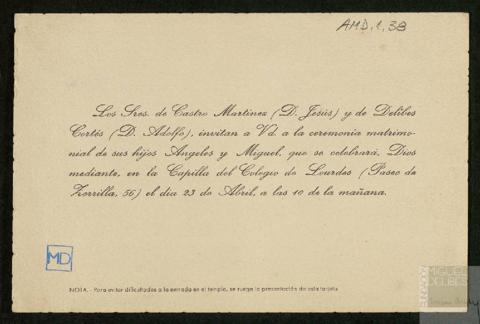 AMD, 1, 38
Los Sres. de Castro Martínez (D. Jesús) y de Delibes
Cortés (D. Adolfo), invitan a Vd. a la ceremonia matrimo-
nial de sus hijos Angeles y Miguel, que se celebrará, Dios
mediante, en la Capilla del Colegio de Lourdes (Paseo de
Zorrilla, 56) el día 23 de Abril, a las 10 de la mañana.
MD
NOTA.- Para evitar dificultades a la entrada en el templo, se ruega la presentación de esta tarjeta
FUNDACIÓN
MIGUEL
DELIBES